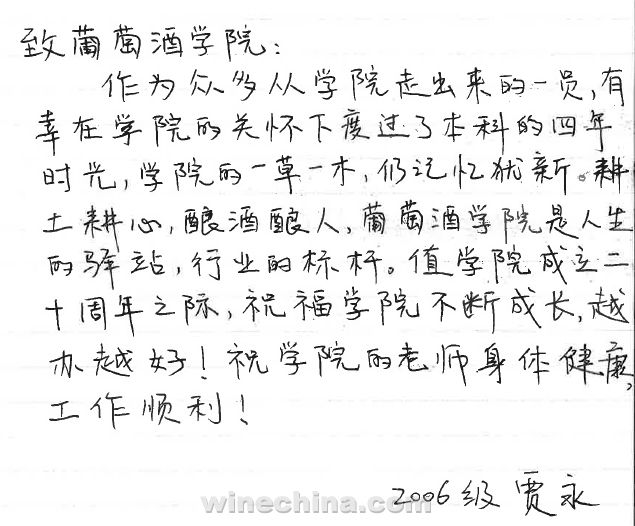 致葡萄酒学院：
作为众多从学院走出来的一员，有
幸在学院的关怀下度过了本科的四年
时光，学院的一草一木，仍记忆犹新。耕
土耕心，酿酒酿人，葡萄酒学院是人生
的驿站，行业的标杆。值学院成立二
十周年之际，祝福学院不断成长，越
办越好！祝学院的老师身体健康，
工作顺利！
2006级 贾永
www.winechina.com